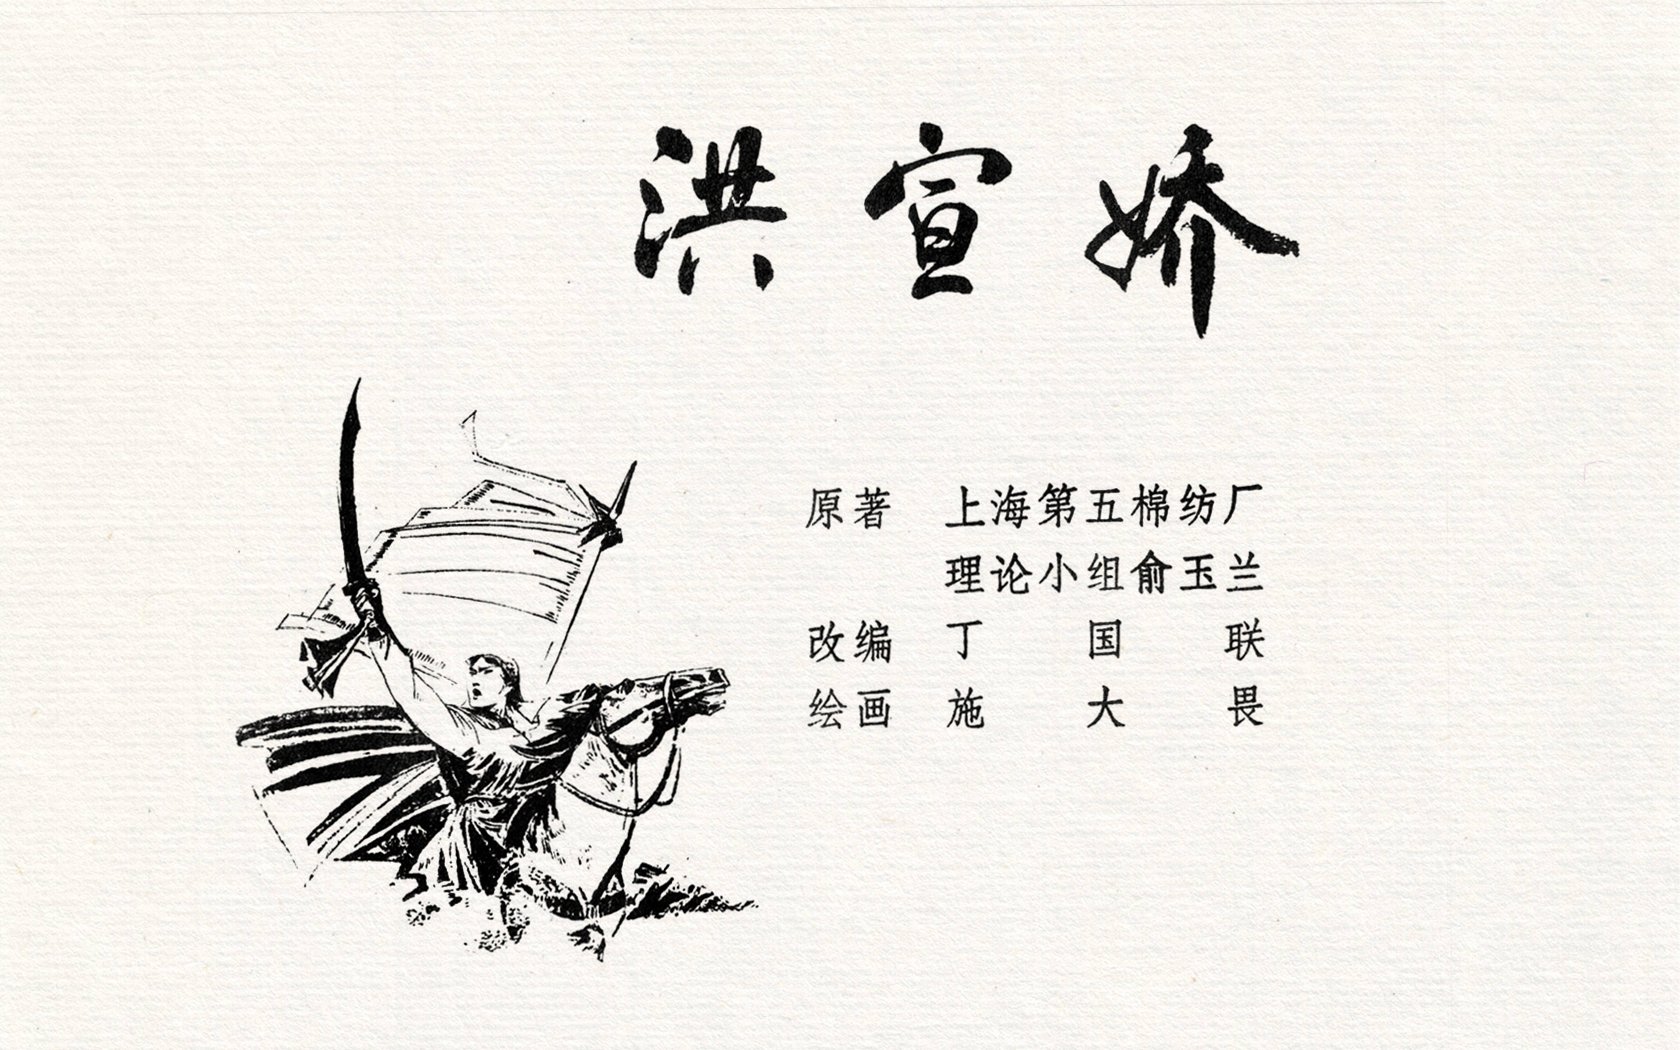 洪宣娇
原著 上海第五棉纺厂
理论小组俞玉兰
改编 丁国联
绘画 施大畏